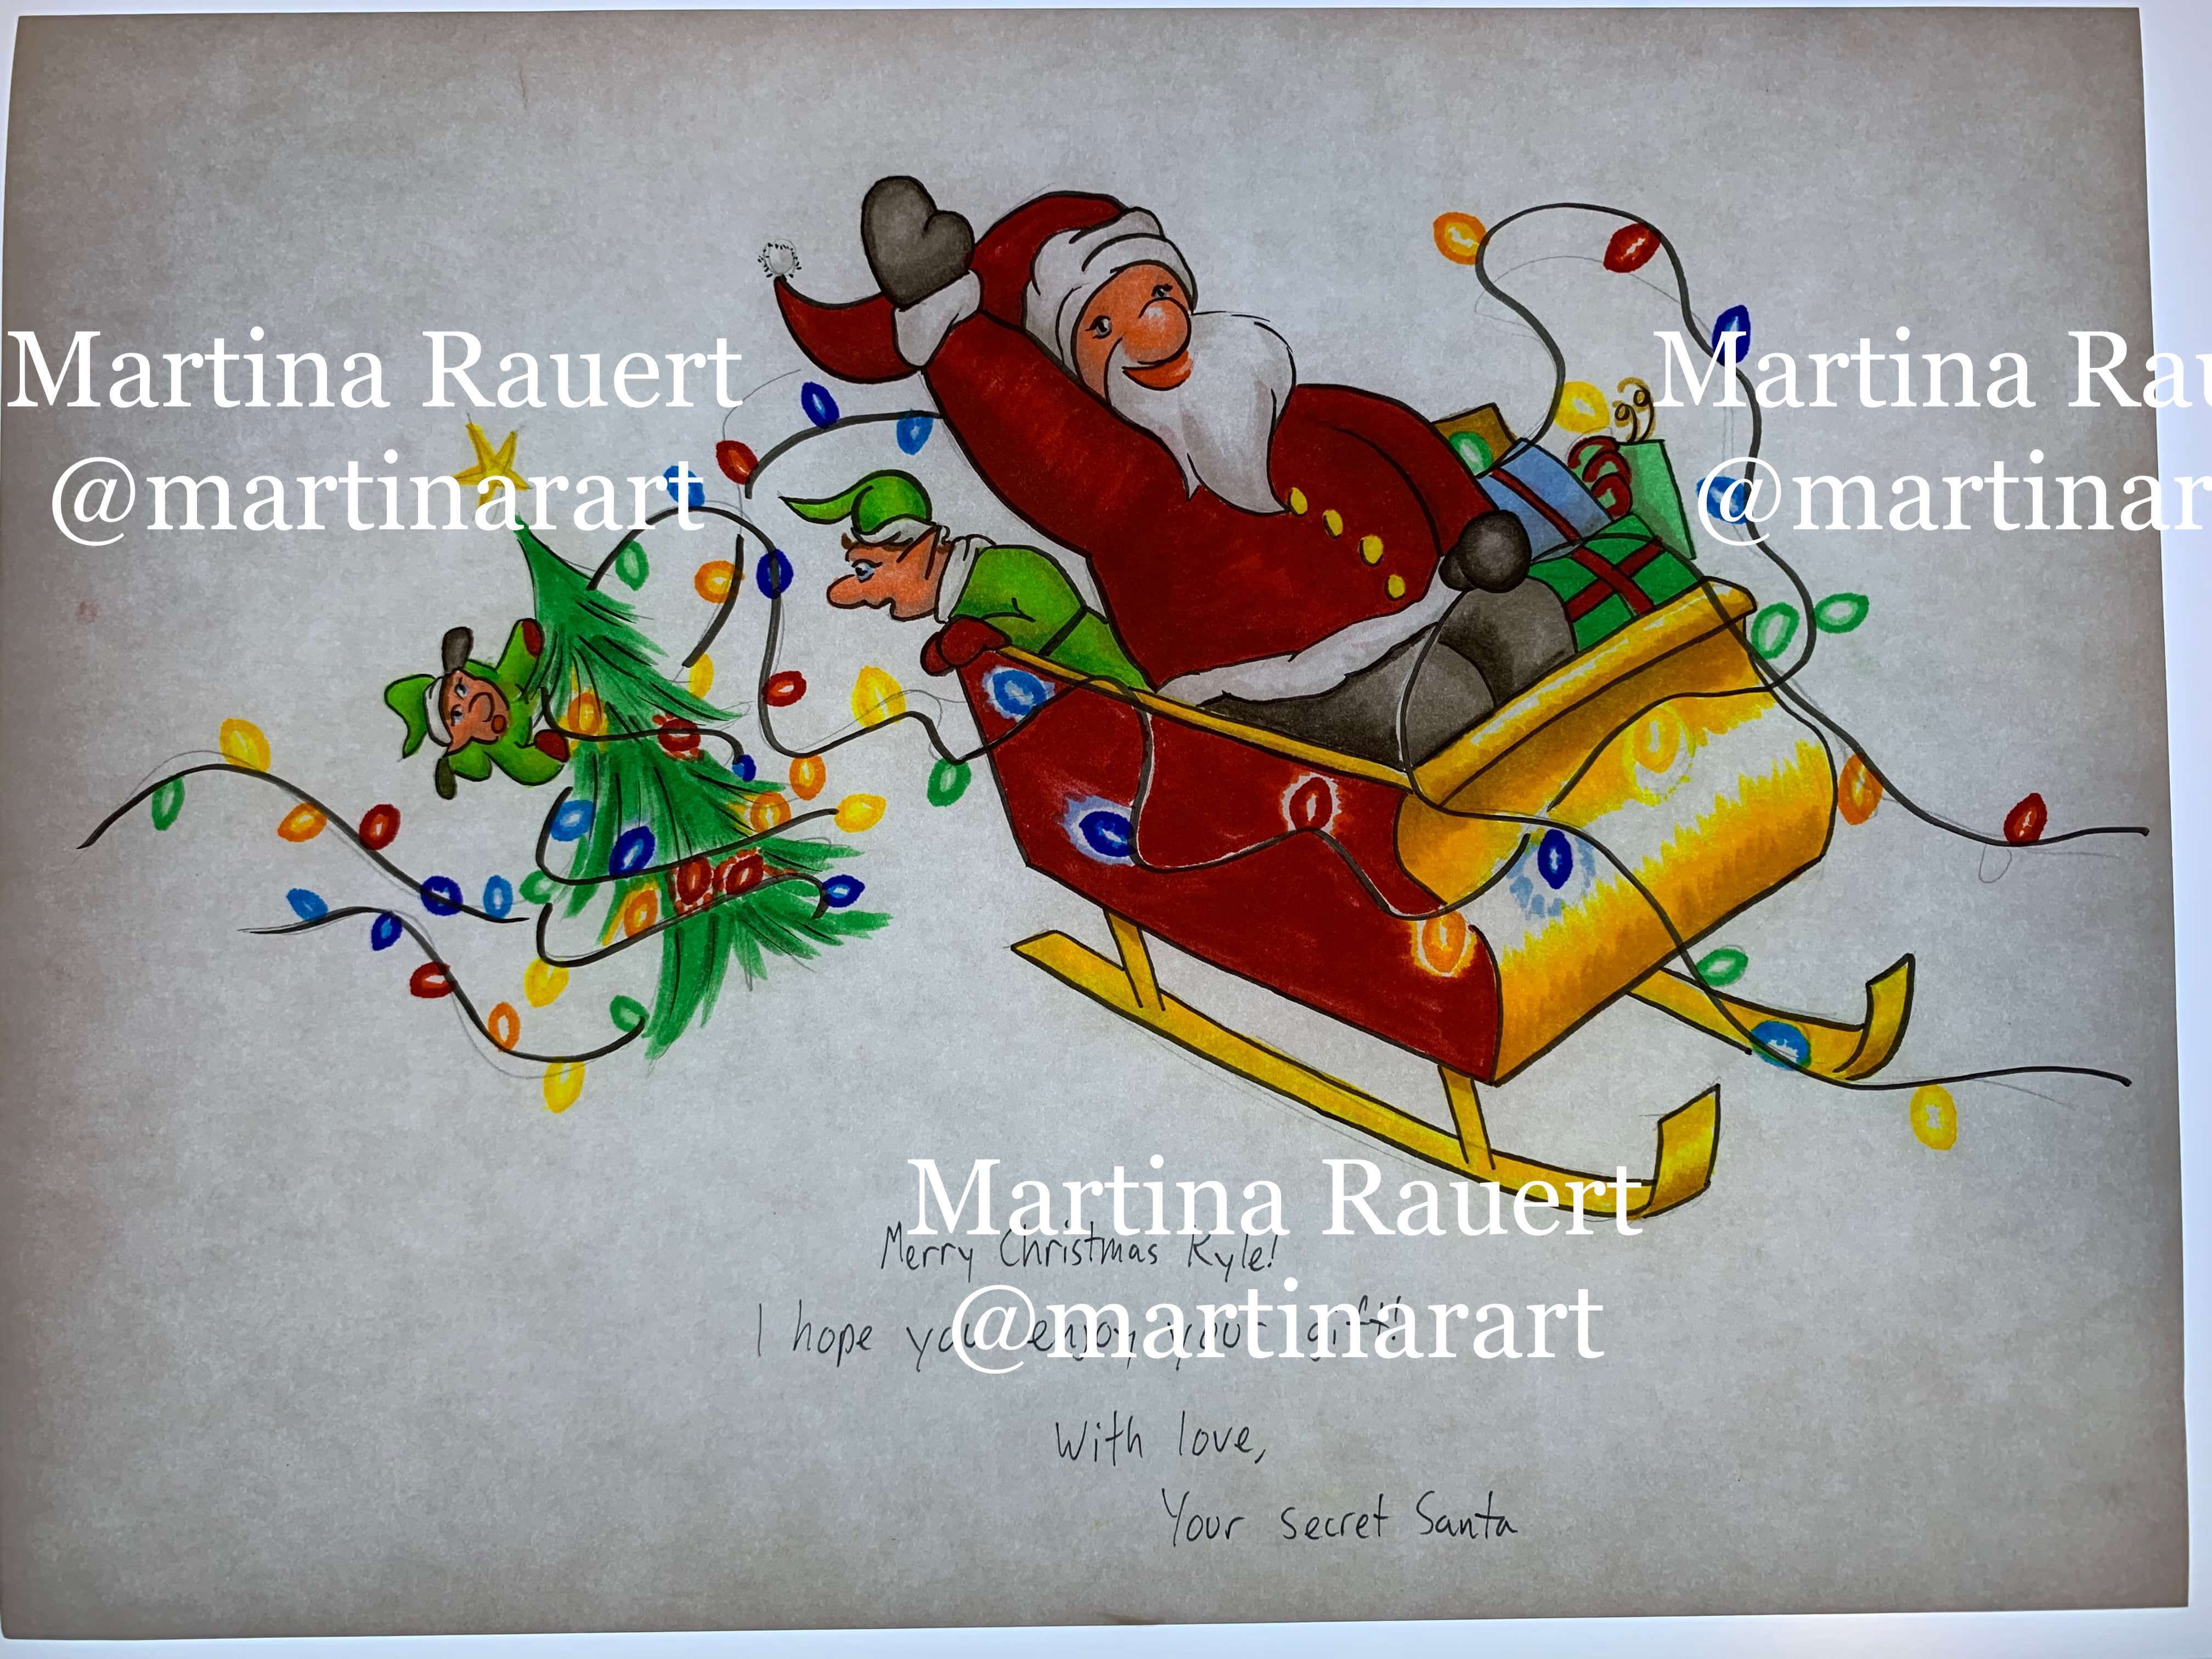 Martina Rauert
@martinarart
Martina Rau
@martinar
Martina Rauert
@martinarart
Merry Christmas Kyle!
I hope you enjoy your gift!
With love,
Your secret Santa